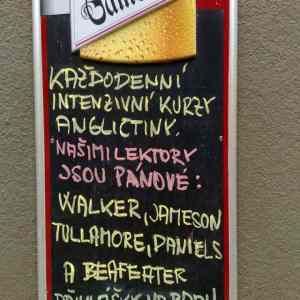 KAŽDODENNÍ
INTENZIVNÍ KURZY
ANGLIČTINY.
NAŠIMI LEKTORY
JSOU PÁNOVÉ:
WALKER, JAMESON
TULLAMORE, DANIELS
A BEAFEATER